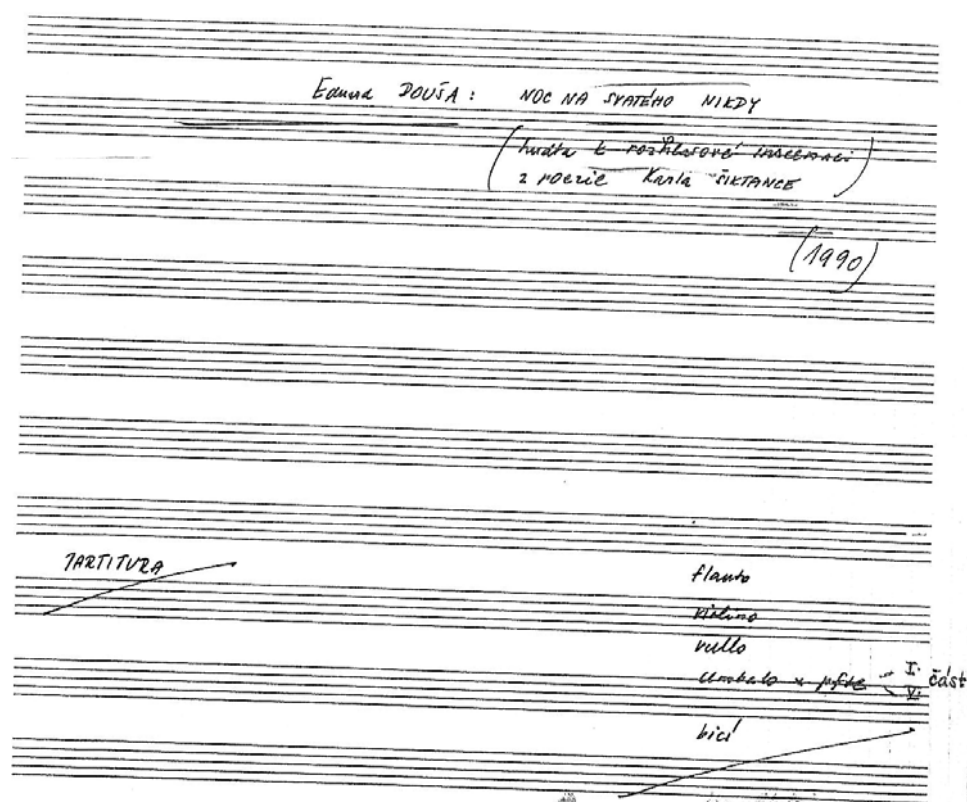 Eduard DOUŠA : NOC NA SVATÉHO NIKDY
(hudba k rozhlasové inscenaci
z poezie Karla ŠIKTANCE)
(1990)
PARTITURA
flauto
violino
vcello
I.
V. část
bicí